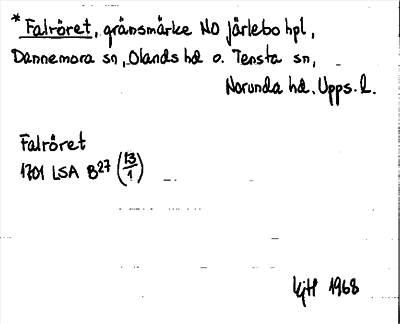 * Falröret, gränsmärke NO Järlebo hpl,
Dannemora sn, Olands hd o. Tensta sn,
Norunda hd. Upps. l.
Falröret
1701 LSA B27 (13/1)
KjH 1968